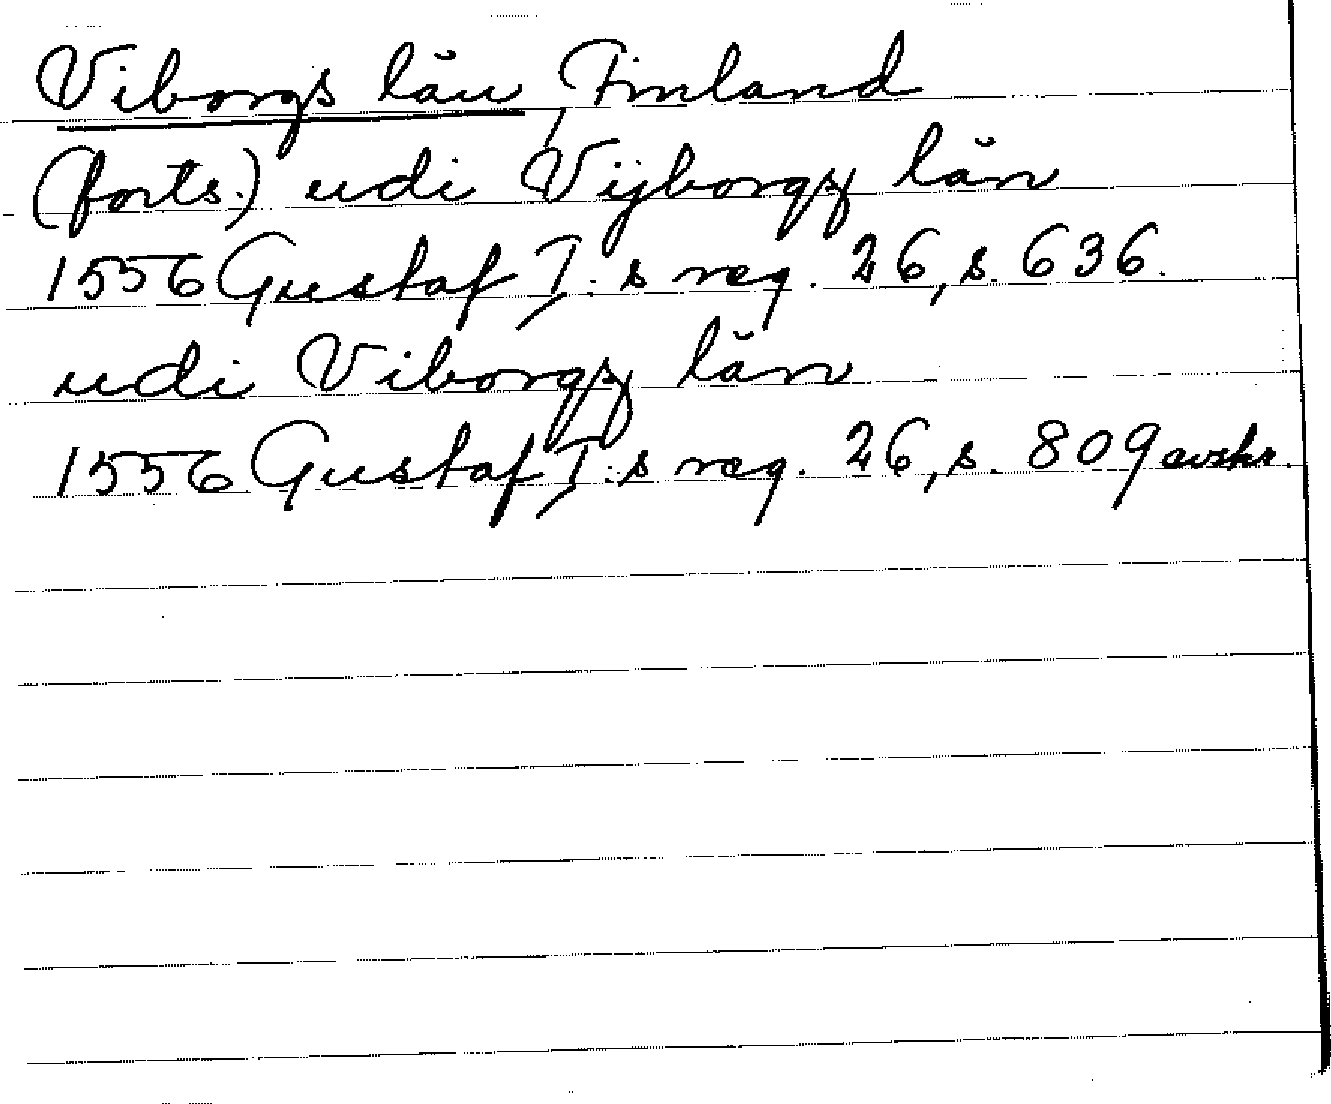 Viborgs län, Finland
(forts.) udi Vijborgsz län
1556 Gustaf I:s reg. 26, s. 636.
udi Viborgsz län
1556 Gustaf I:s reg. 26, s. 809 avskr.